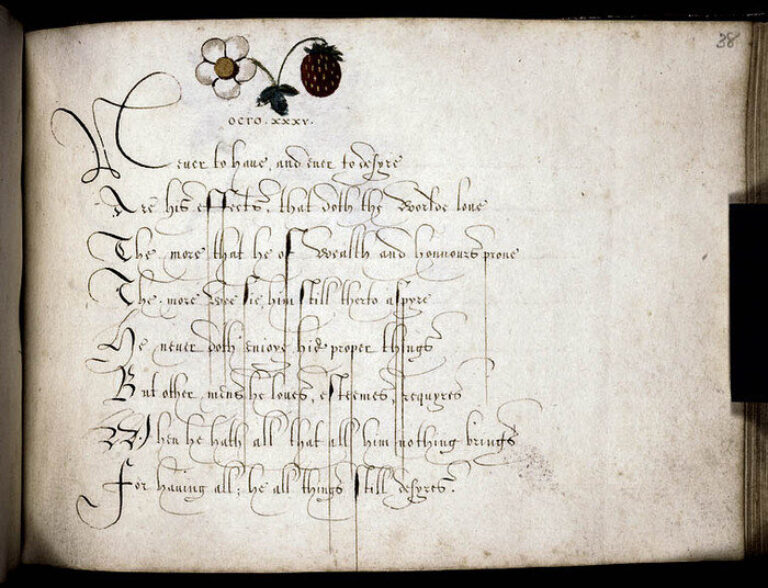 38
OCTO . XXXV.
Never to haue, and euer to desyre
Are his effects, that doth the Worlde loue
The more that he of Wealth and honnours proue
The more Wee sie him still therto aspyre
He neuer doth enioye his proper things
But other mens he loues, esteemes, requyres
When he hath all that all him nothing brings
For hauing all; he all things still desyres.